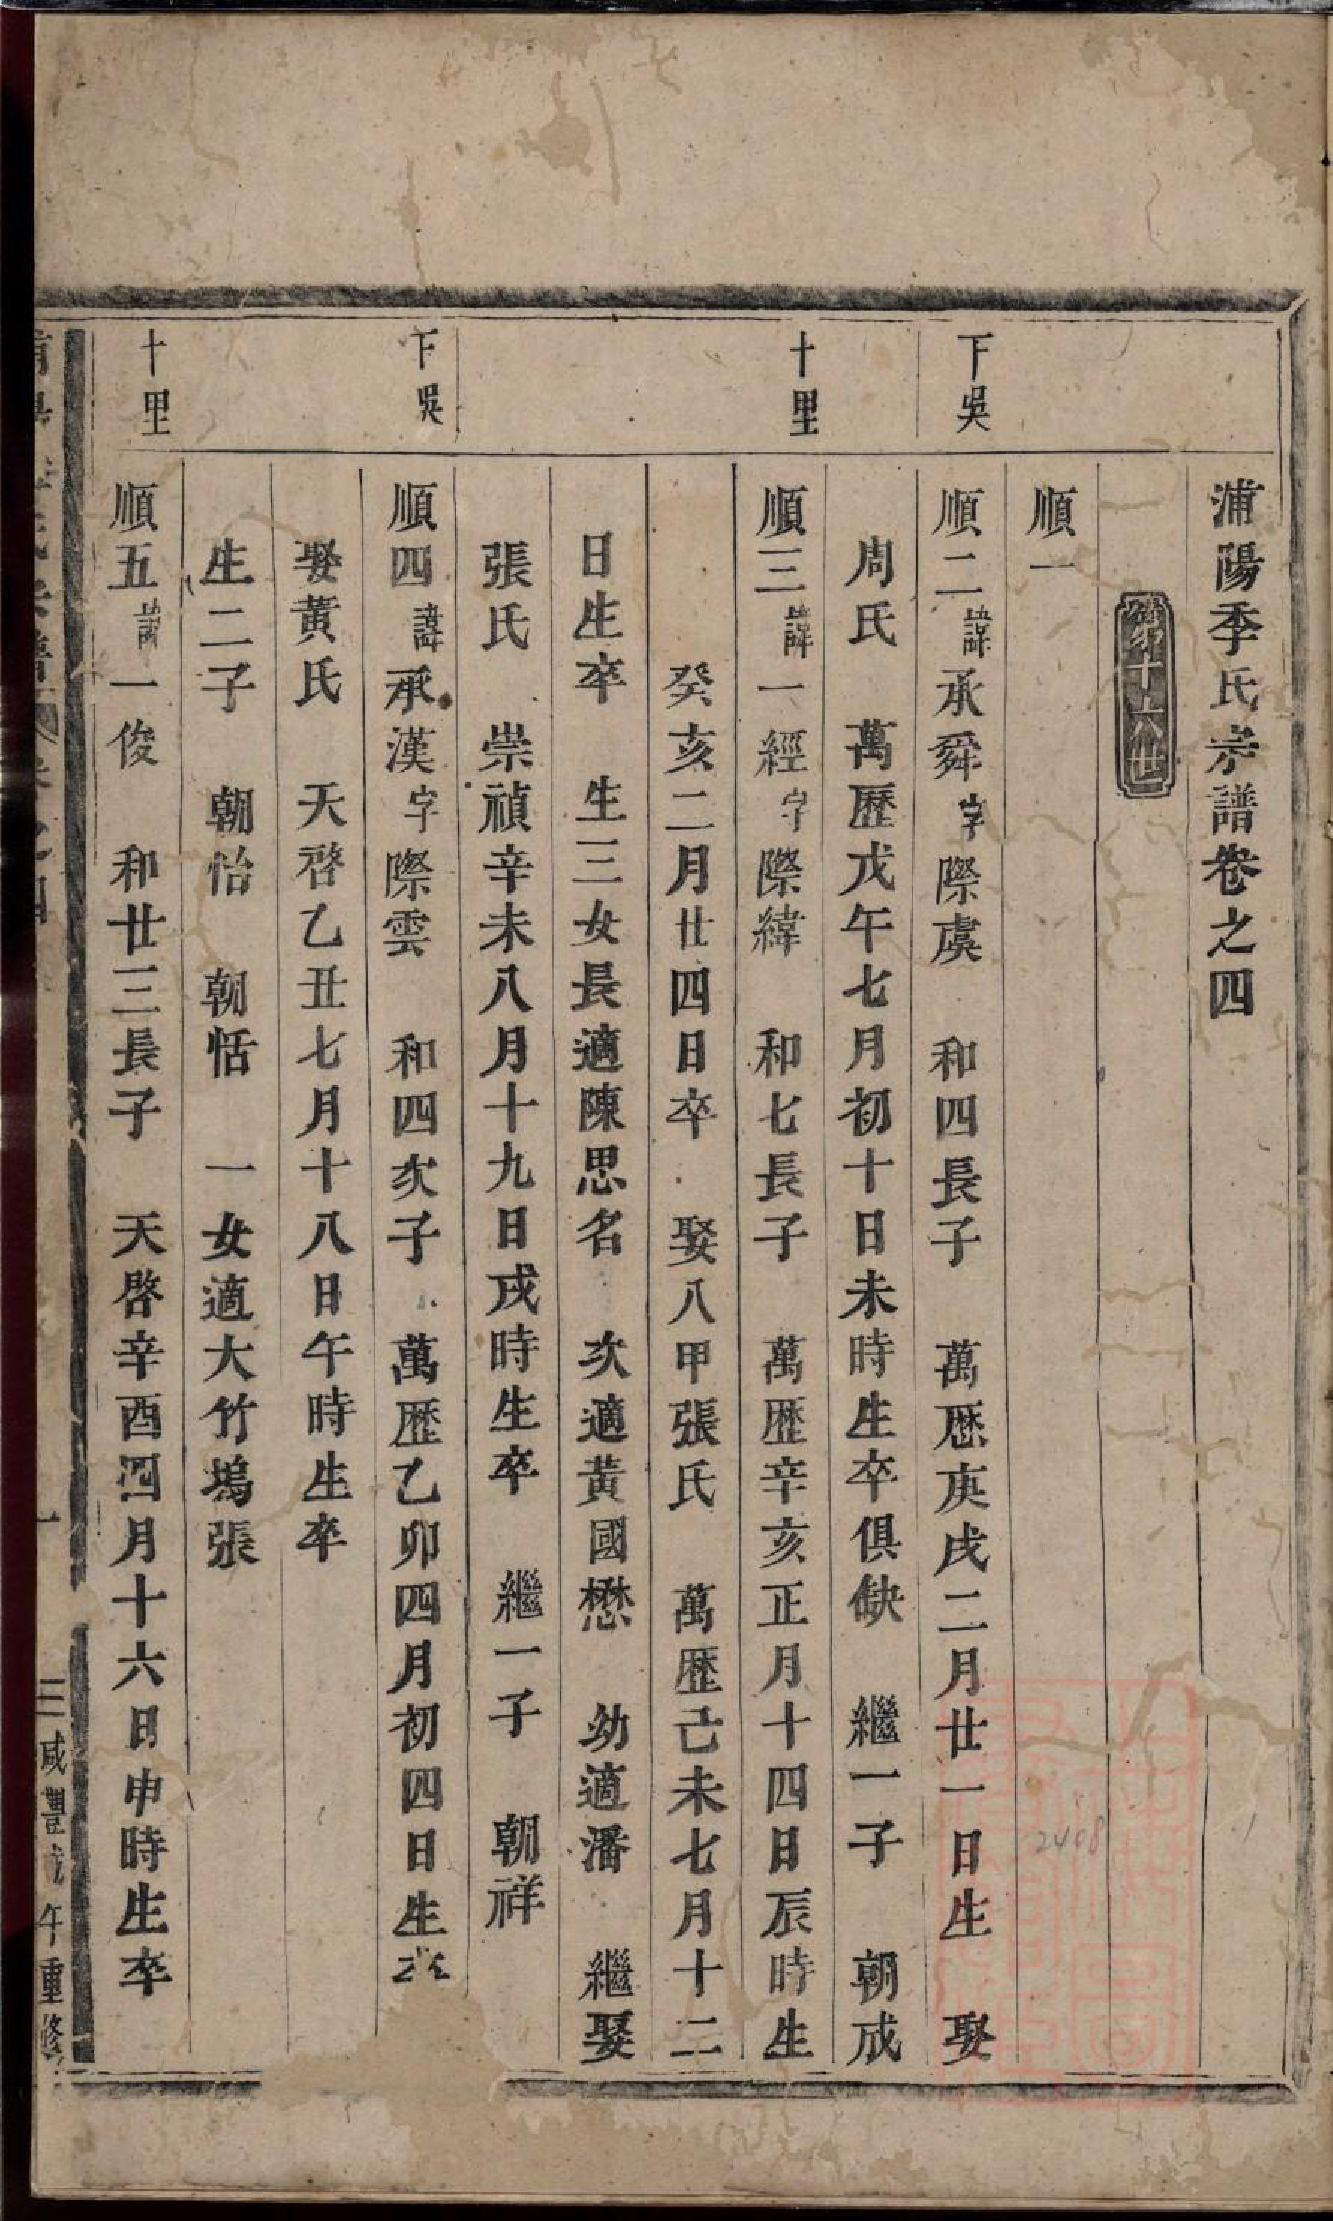 浦陽季氏宗譜卷之四
第十六世
順一
下吳
順二諱承舜字際虞　和四長子　萬歷庚戌二月廿一日生　娶
周氏　萬歷戊午七月初十日未時生卒俱缺　繼一子　朝成
十里
順三諱一經字際緯　和七長子　萬歷辛亥正月十四日辰時生
癸亥二月廿四日卒　娶八甲張氏　萬歷己未七月十二
日生卒　生三女長適陳思名　次適黃國懋　幼適潘　繼娶
張氏　崇禎辛未八月十九日戌時生卒　繼一子　朝祥
下吳
順四諱承漢字際雲　和四次子　萬歷乙卯四月初四日生
娶黃氏　天啓乙丑七月十八日午時生卒
生二子　朝怡　朝恬　一女適大竹塢張
十里
順五諱一俊　和廿三長子　天啓辛酉四月十六日申時生卒
氏宗譜 卷之四 一 咸豐戊午重修
2408